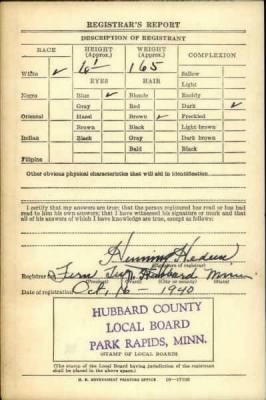 REGISTRAR'S REPORT
DESCRIPTION OF REGISTRANT
RACE HEIGHT (Approx.) WEIGHT (Approx.) COMPLEXION
White ✓ 6' 165 Sallow
EYES HAIR Light
Negro Blue ✓ Blonde Ruddy
Gray Red Dark ✓
Oriental Hazel Brown ✓ Freckled
Brown Black Light brown
Indian Black Gray Dark brown
Bald Black
Filipino
Other obvious physical characteristics that will aid in identification
I certify that my answers are true; that the person registered has read or has had
read to him his own answers; that I have witnessed his signature or mark and that
all of his answers of which I have knowledge are true, except as follows:
Henning
(Signature of registrar)
Registrar for Fern Hubbard Minn
(Precinct) (City or county) (State)
Date of registration Oct. 16 - 1940
HUBBARD COUNTY
LOCAL BOARD
PARK RAPIDS, MINN.
(STAMP OF LOCAL BOARD)
(The stamp of the Local Board having jurisdiction of the registrant
shall be placed in the above space.)
U. S. GOVERNMENT PRINTING OFFICE